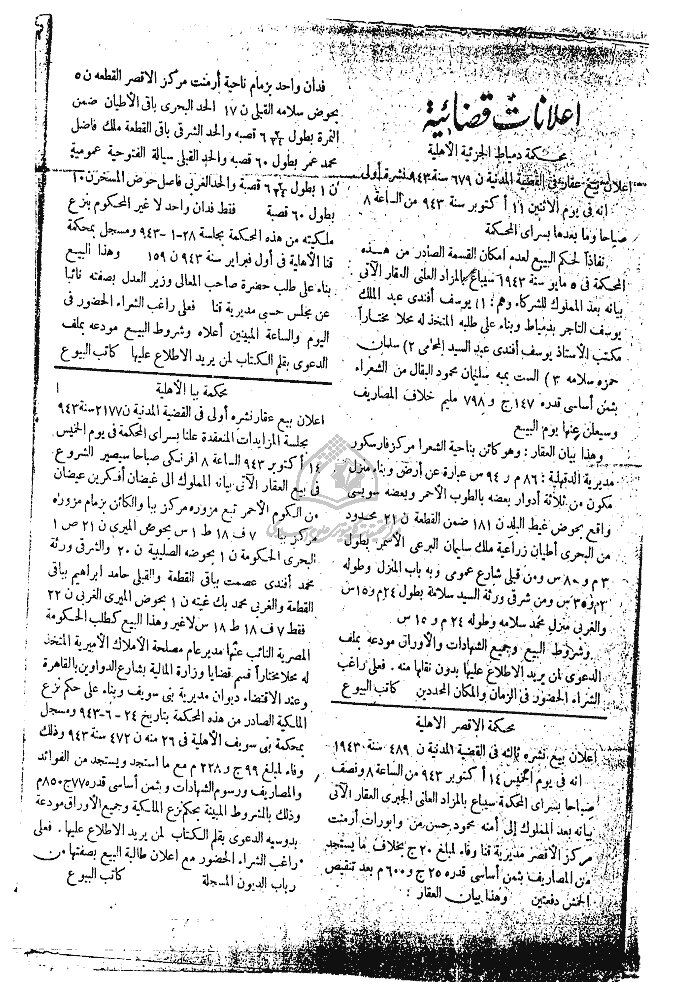 اعلانات قضائية
محكمة دمياط الجزئية الأهلية
اعلان بيع عقار فى القضية المدنية ن ٦٧٩ سنة ٩٤٣ نشرة أولى
انه فى يوم الاثنين ١١ أكتوبر سنة ٩٤٣ من الساعة ٨
صباحا وما بعدها بسراى المحكمة
نفاذاً لحكم البيع لعدم امكان القسمة الصادر من هذه
المحكمة فى ٥ مايو سنة ١٩٤٣ سيباع بالمزاد العلنى العقار الآتى
بيانه بعد المملوك للشركاء وهم : ١) يوسف أفندى عبد الملك
يوسف التاجر بدمياط وبناء على طلبه المتخذ له محلا مختاراً
مكتب الأستاذ يوسف أفندى عبد السيد المحامى ٢) سلمان
حمزه سلامه ٣) الست بمبه سليمان محمود البقال من الشعراء
بثمن أساسى قدره ١٤٧ ج و ٧٩٨ مليم خلاف المصاريف
وسيعلن عنها يوم البيع
وهذا بيان العقار : وهو كائن بناحية الشعرا مركز فارسكور
مديرية الدقهلية : ٨٦ م و ٩٤ س عبارة عن أرض وبناء منزل
مكون من ثلاثة أدوار بعضه بالطوب الأحمر وبعضه سويسى
واقع بحوض غيط البلد ن ١٨١ ضمن القطعة ن ٢١ محدود
من البحرى أطيان زراعية ملك سليمان البرعى الأسمر بطول
٣ م و ٨٠ س ومن قبلى شارع عمومى وبه باب المنزل وطوله
٣ م و ٣٥ س ومن شرقى ورثة السيد سلامة بطول ٢٤ م و ١٥ س
والغربى منزل محمد سلامه وطوله ٢٤ م و ١٥ س
وشروط البيع وجميع الشهادات والأوراق مودعه بملف
الدعوى لمن يريد الاطلاع عليها بدون نقلها منه . فعلى راغب
الشراء الحضور فى الزمان والمكان المحددين كاتب البيوع
محكمة الاقصر الاهلية
اعلان بيع نشره ثالثه فى القضية المدنية ن ٤٨٩ سنة ١٩٤٣
انه فى يوم الخميس ١٤ أكتوبر ٩٤٣ من الساعة ٨ ونصف
صباحا بسراى المحكمة سيباع بالمزاد العلنى الجبرى العقار الآتى
بيانه بعد المملوك إلى أمنه محمود حسن من وابورات أرمنت
مركز الأقصر مديرية قنا وفاء لمبلغ ٢٠ ج بخلاف ما يستجد
من المصاريف بثمن أساسى قدره ٢٥ ج و ٦٠٠ م بعد تنقيص
الخمس دفعتين وهذا بيان العقار :
فدان واحد بزمام ناحية أرمنت مركز الاقصر القطعه ن ٥
بحوض سلامه القبلى ن ١٧ الحد البحرى باقى الأطيان ضمن
النمرة بطول قصبه والحد الشرقى باقى القطعة ملك فاضل
محمد عمر بطول ٦٠ قصبه والحد القبلى سيالة الفتوحية عمومية
ن ١ بطول قصبة والحد الغربى فاصل حوض المسخرن ١٠
بطول ٦٠ قصبة فقط فدان واحد لا غير المحكوم بنزع
ملكيته من هذه الحكمة بجلسة ٢٨-١-٩٤٣ ومسجل بمحكمة
قنا الأهلية فى أول فبراير سنة ٩٤٣ ن ١٥٩ وهذا البيع
بناء على طلب حضرة صاحب المعالى وزير العدل بصفته نائبا
عن مجلس حسبى مديرية قنا فعلى راغب الشراء الحضور فى
اليوم والساعة المبينين أعلاه وشروط البيع مودعه بملف
الدعوى بقلم الكتاب لمن يريد الاطلاع عليها كاتب البيوع
محكمة ببا الأهلية
اعلان بيع عقار نشره أولى فى القضية المدنية ن ٢١٧٧ سنة ٩٤٣
بجلسة المزايدات المنعقدة علنا بسراى المحكمة فى يوم الخميس
١٤ أكتوبر ٩٤٣ الساعة ٨ افرنكى صباحا سيصير الشروع
فى بيع العقار الآتى بيانه المملوك الى غيضان أفكر بن عيضان
من الكوم الأحمر تبع مزوره مركز ببا والكائن بزمام مزوره
مركز ببا ٧ ف ١٨ ط ١ س بحوض الميرى ن ٢١ ص ١
البحرى الحكومة ن ١ بحوضه الصليبية ن ٢٠ والشرقى ورثة
محمد أفندى عصمت بباقى القطعة والقبلى حامد ابراهيم بباقى
القطعة والغربى محمد بك غيته ن ١ بحوض الميرى الغربى ن ٢٢
فقط ٧ ف ١٨ ط ١٨ س لاغير وهذا البيع كطلب الحكومة
المصرية النائب عنها مدير عام مصلحة الأملاك الأميرية المتخذ
له محلا مختاراً قسم قضايا وزارة المالية بشارع الدواوين بالقاهرة
وعند الاقتضاء ديوان مديرية بنى سويف وبناء على حكم نزع
الملكية الصادر من هذه المحكمة بتاريخ ٢٤-٦-٩٤٣ ومسجل
بمحكمة بنى سويف الأهلية فى ٢٦ منه ن ٤٧٢ سنة ٩٤٣ وذلك
وفاء لمبلغ ٩٩ ج و ٢٢٨ م مع ما استجد ويستجد من الفوائد
والمصاريف ورسوم الشهادات وبثمن أساسى قدره ٧٧ ج ٨٥٠ م
وذلك بالشروط المبينة بحكم نزع الملكية وجميع الأوراق مودعة
بدوسيه الدعوى بقلم الكتاب لمن يريد الاطلاع عليها . فعلى
راغب الشراء الحضور مع اعلان طالبة البيع بصفتها من
رباب الديون المسجلة كاتب البيوع